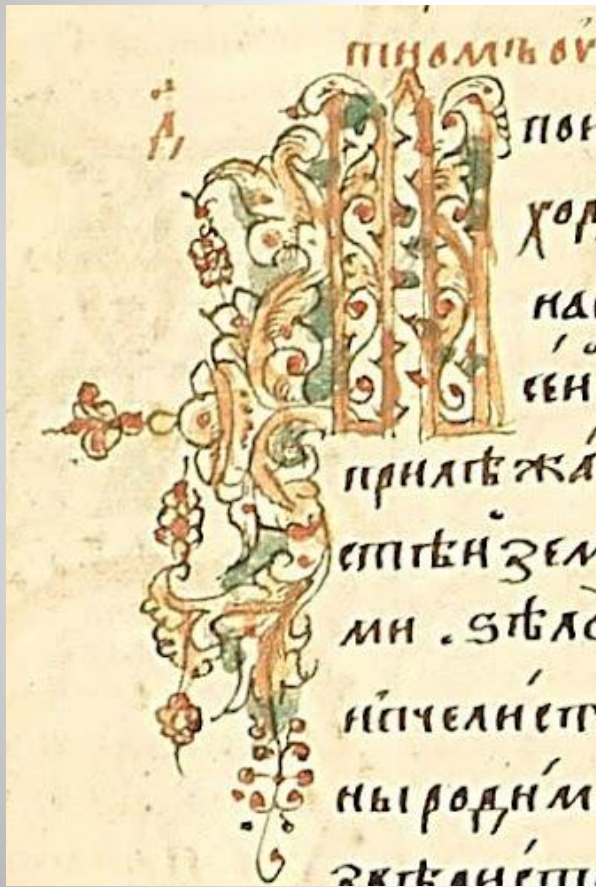 тїномъ оу
пон
ход
нас
сен
прилѣжа
стѣи зем
ми . ѕѣло
ипчелнет
ны родим